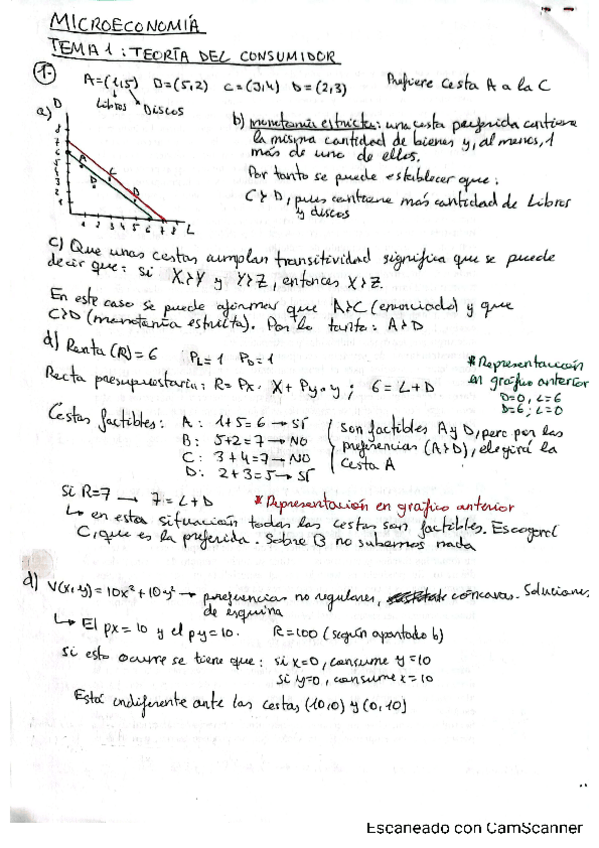 MICROECONOMÍA
TEMA 1: TEORÍA DEL CONSUMIDOR
1. A=(1,5) B=(5,2) C=(3,4) D=(2,3) Prefiere cesta A a la C
Libros Discos
a) D
8
7
6
5
4
3
2
1
A
C
D
B
1 2 3 4 5 6 7 8 L
b) monotonía estricta: una cesta preferida contiene
la misma cantidad de bienes y, al menos, 1
más de uno de ellos.
Por tanto se puede establecer que:
C≻D, pues contiene más cantidad de Libros
y discos
c) Que unas cestas cumplan transitividad significa que se puede
decir que: si X≻Y y Y≻Z, entonces X≻Z.
En este caso se puede afirmar que A≻C (enunciado) y que
C≻D (monotonía estricta). Por lo tanto: A≻D
d) Renta (R)=6 PL=1 PD=1
Recta presupuestaria: R= Px · X + Py · y ; 6 = L+D
* Representación
en gráfico anterior
D=0, L=6
D=6; L=0
Cestas factibles: A: 1+5=6 → SÍ
B: 5+2=7 → NO
C: 3+4=7 → NO
D: 2+3=5 → SÍ
son factibles A y D, pero por las
preferencias (A≻D), elegirá la
cesta A
Si R=7 → 7=L+D * Representación en gráfico anterior
↳ en esta situación todas las cestas son factibles. Escogerá
C, que es la preferida. Sobre B no sabemos nada
d) V(x,y)=10x²+10y² → preferencias no regulares, cóncavas. Soluciones
de esquina
↳ El px=10 y el py=10. R=100 (según apartado b)
Si esto ocurre se tiene que: si x=0, consume y=10
si y=0, consume x=10
Está indiferente ante las cestas (10,0) y (0,10)
Escaneado con CamScanner